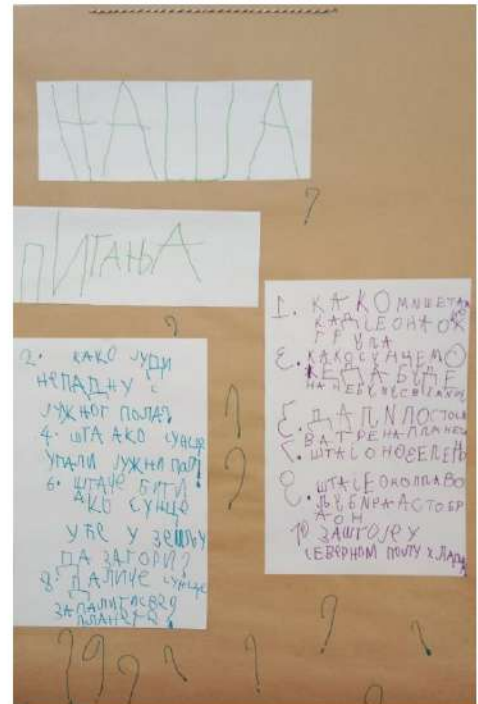 НАША
?
ПИТАЊА
?
2. КАКО ЈУДИ
НЕПАДНУ С
ЈУЖНОГ ПОЛА?
4. ШТА АКО СУНЦЕ
УПАЛИ ЈУЖНИ ПОЛ?
6. ШТАЋЕ БИТИ
АКО СУНЦЕ
УЂЕ У ЗЕМЉУ
ДА ЗАГОРИ?
8. ДАЛИЋЕ СУНЦЕ
ЗАПАЛИТИ СВЕ
ПЛАНЕТЕ?
1. КАКО МИ ШЕТА
КАД ЈЕ ОНА ОК
РУГЛА
КАКО СУНЦЕ МО
ЖЕ ДА БУДЕ
НА НЕБУ
5. ДА ЛИ ПОСТОЈИ
ВАТРЕНА ПЛАНЕТ
7. ШТА ЈЕ ОНО ЗЕЛЕНО
ШТА ЈЕ ОНО ПЛАВО
10 ЗАШТО ЈЕ У
СЕВЕРНОМ ПОЛУ ХЛАД
? ? ? ? ? ? ?